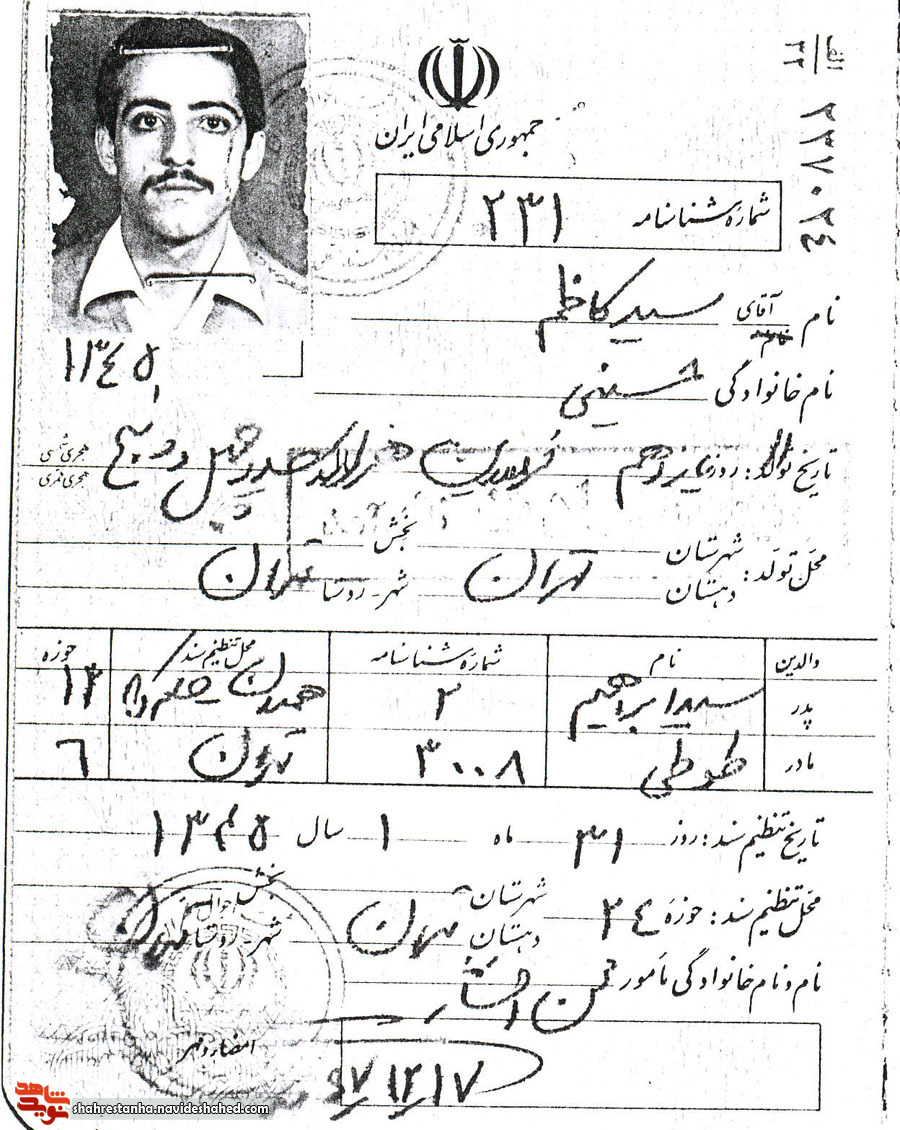 الف
٣٢
جمهوری اسلامی ایران
شماره شناسنامه ٢٣١
نام آقای سید کاظم
نام خانوادگی حسینی
١٣٤٥
تاریخ تولد: روز یازدهم فروردین هزار و سیصد و چهل و پنج هجری شمسی
هجری قمری
محل تولد: شهرستان تهران بخش
دهستان شهر - روستا تهران
والدین نام شماره شناسنامه محل تنظیم سند حوزه
پدر سید ابراهیم ٢ همدان ١٣
مادر طوطی ٣٠٠٨ تهران ٦
تاریخ تنظیم سند: روز ٣١ ماه ١ سال ١٣٤٥
محل تنظیم سند: حوزه ٢٤ شهرستان تهران بخش
دهستان شهر - روستا تهران
نام و نام خانوادگی مأمور
امضاء و مهر
نوید شاهد
shahrestanha.navideshahed.com